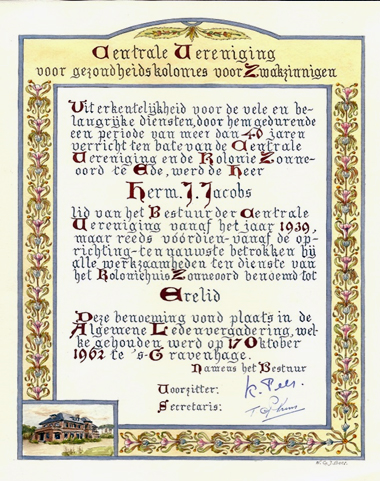 Centrale Vereniging
voor gezondheidskolonies voor Zwakzinnigen
Uit erkentelijkheid voor de vele en be-
langrijke diensten, door hem gedurende
een periode van meer dan 40 jaren
verricht ten bate van de Centrale
Vereniging en de Kolonie Zonne-
oord te Ede, werd de Heer
Herm. J. Jacobs
lid van het Bestuur der Centrale
Vereniging vanaf het jaar 1939,
maar reeds vóórdien-vanaf de op-
richting-ten nauwste betrokken bij
alle werkzaamheden ten dienste van
het Koloniehuis Zonneoord benoemd tot
Erelid
Deze benoeming vond plaats in de
Algemene Ledenvergadering, wel-
ke gehouden werd op 17 Oktober
1962 te 's-Gravenhage.
Namens het Bestuur
Voorzitter:
Secretaris: